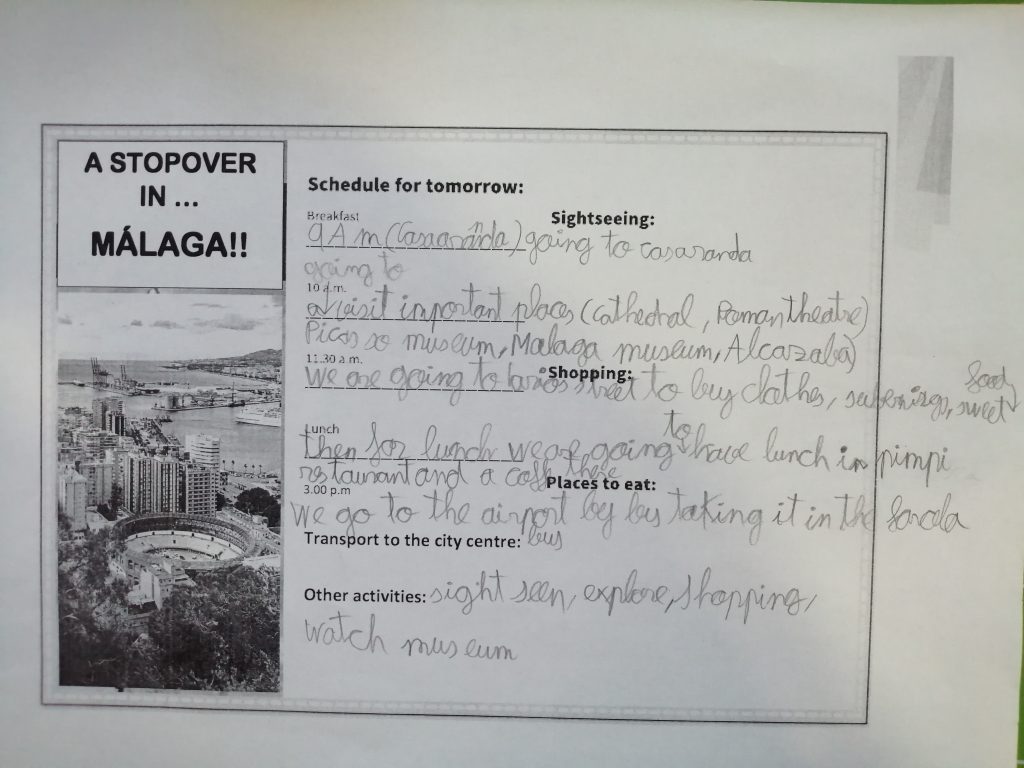 A STOPOVER
IN ...
MÁLAGA!!
Schedule for tomorrow:
Breakfast
Sightseeing:
9 A m (Casaaranda) going to casaranda
going to
10 a.m.
visit important places (Cathedral, Roman theatre)
Picas so museum, Malaga museum, Alcazaba)
11.30 a.m.
Shopping:
food
we are going to larios street to buy clothes, sweet
Lunch
to
then for lunch we are going have lunch in pimpi
restaurant and a coffe there
3.00 p.m
Places to eat:
we go to the airport by bus taking it in the farola
Transport to the city centre: bus
Other activities: sight seen, explore, shopping,
watch museum